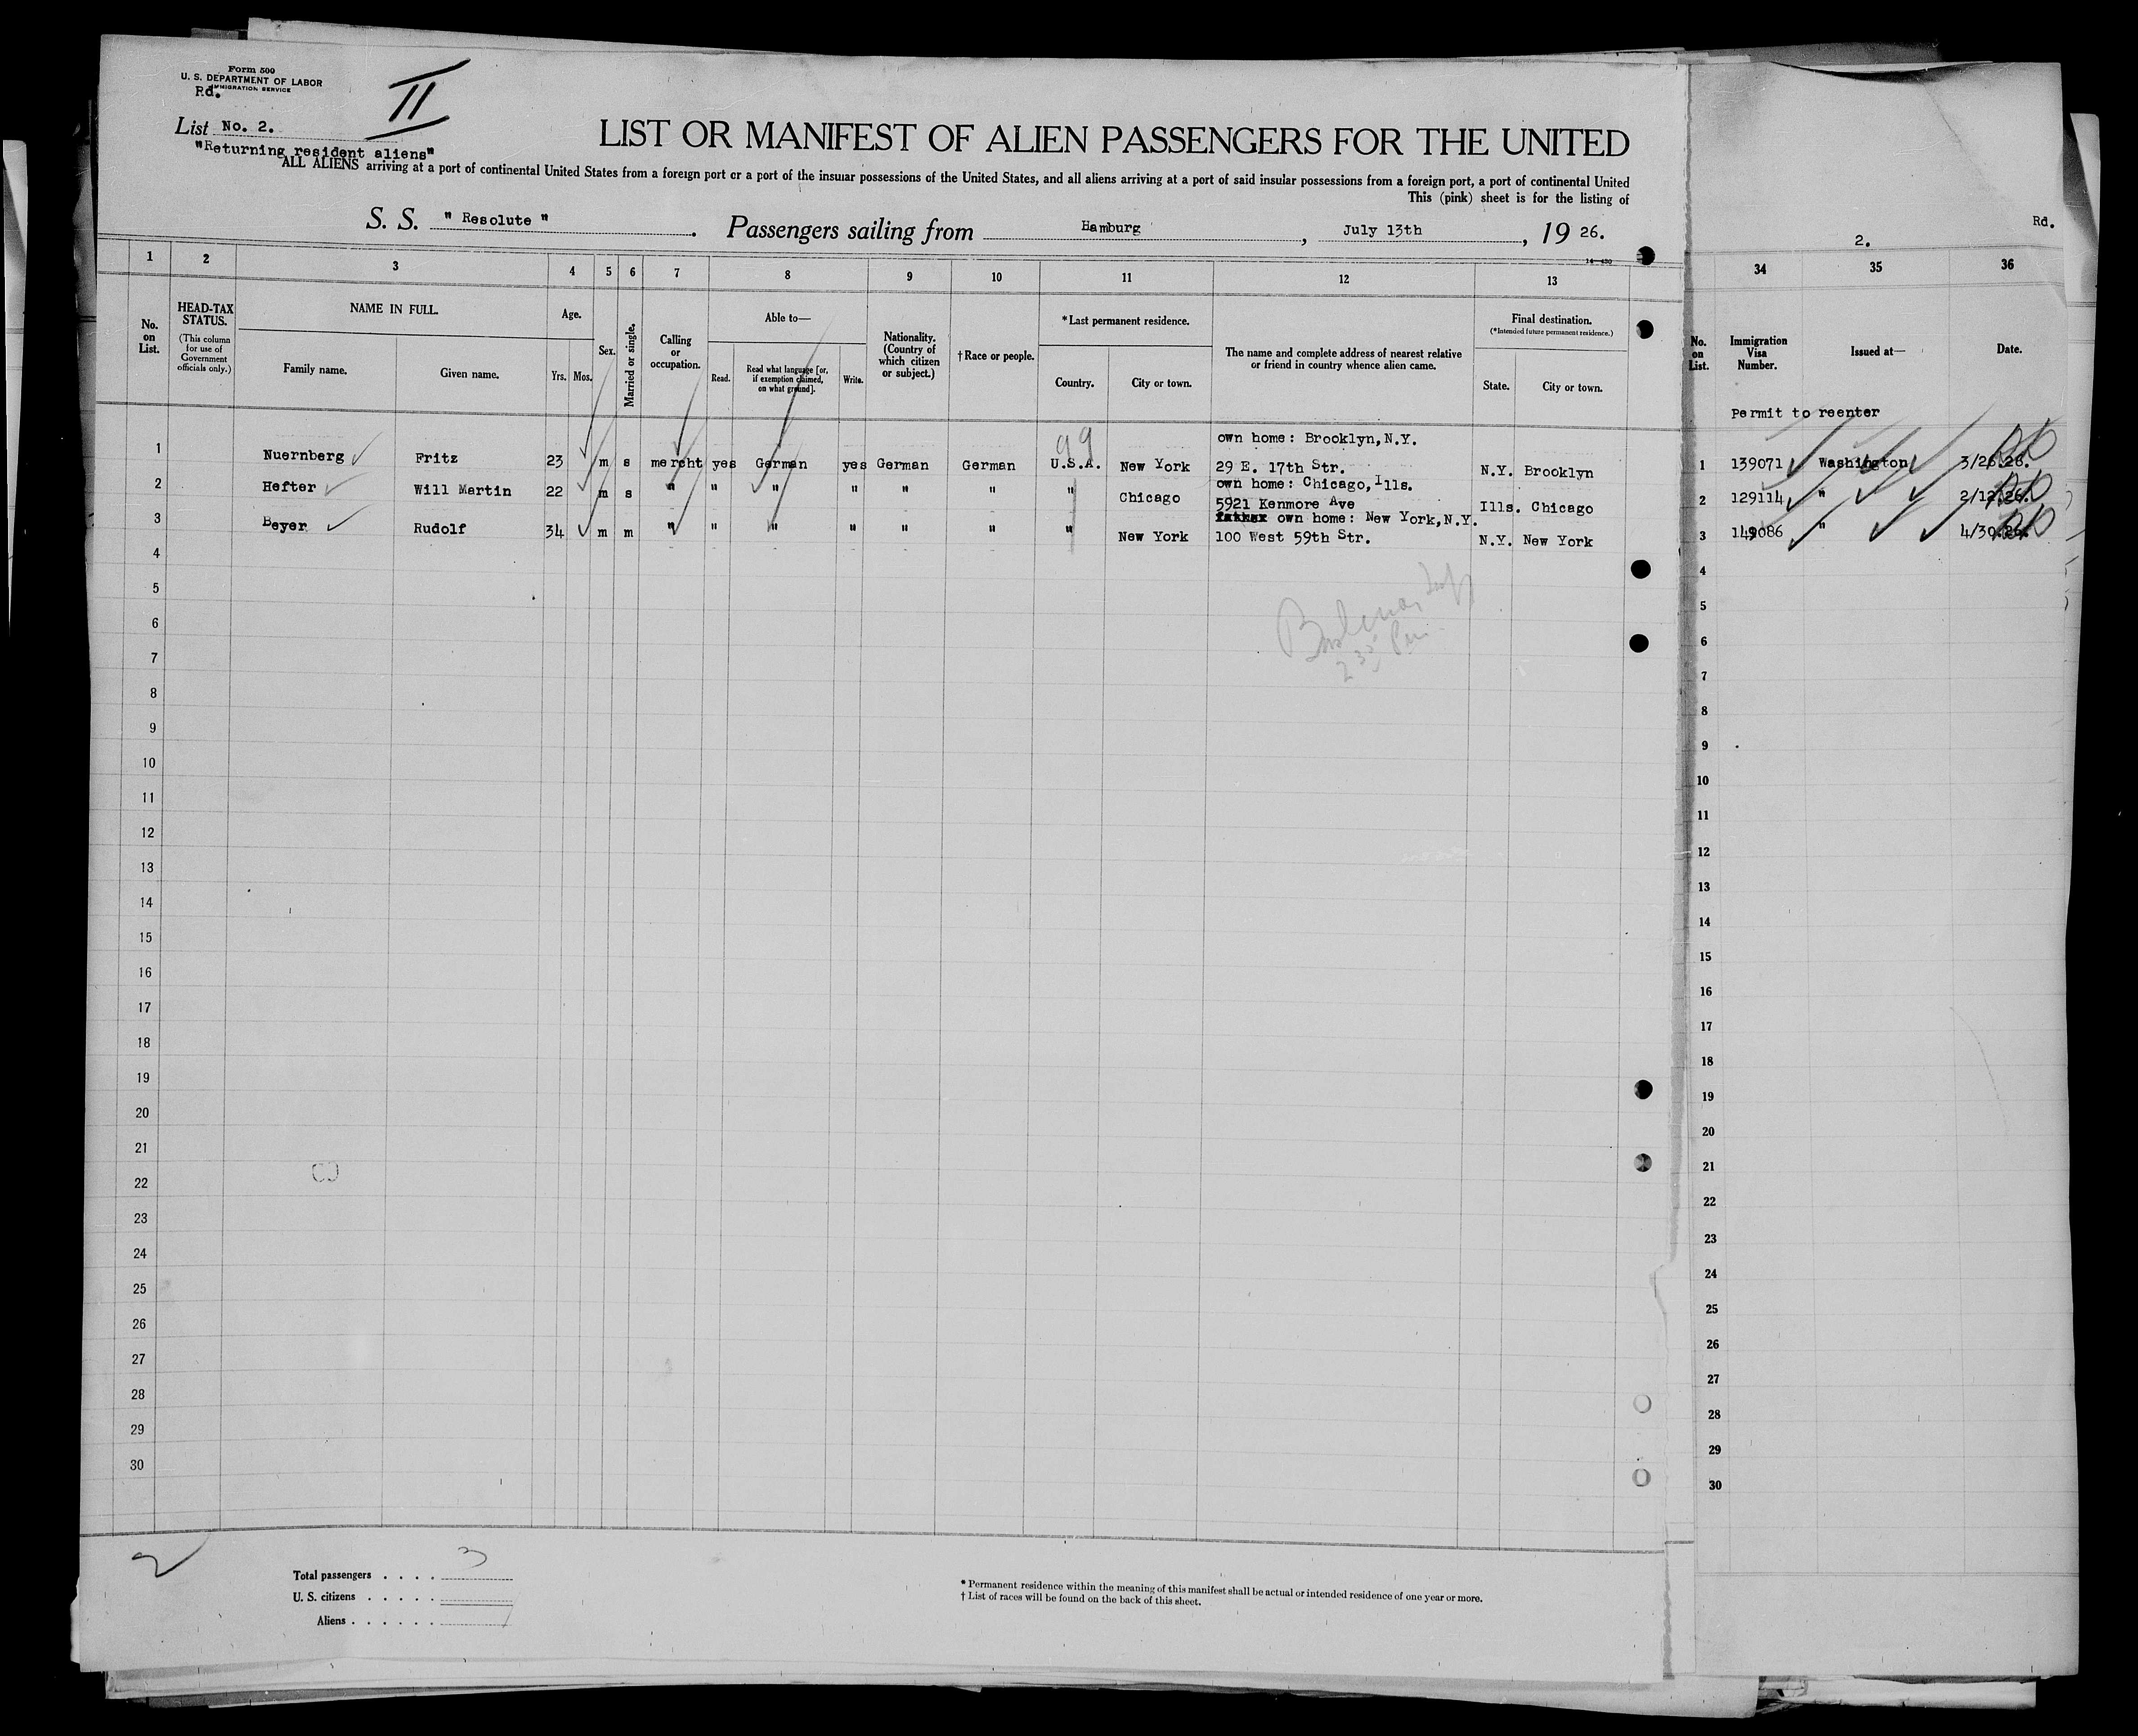 Form 500
U. S. DEPARTMENT OF LABOR
IMMIGRATION SERVICE
Rd.
II
List No. 2.
"Returning resident aliens"
LIST OR MANIFEST OF ALIEN PASSENGERS FOR THE UNITED
ALL ALIENS arriving at a port of continental United States from a foreign port or a port of the insular possessions of the United States, and all aliens arriving at a port of said insular possessions from a foreign port, a port of continental United
This (pink) sheet is for the listing of
S. S. "Resolute". Passengers sailing from Hamburg, July 13th, 1926.
14—430
1 2 3 4 5 6 7 8 9 10 11 12 13
No. on List.
HEAD-TAX STATUS.
(This column for use of Government officials only.)
NAME IN FULL.
Family name. Given name.
Age.
Yrs. Mos.
Sex.
Married or single.
Calling or occupation.
Able to—
Read. Read what language [or, if exemption claimed, on what ground]. Write.
Nationality. (Country of which citizen or subject.)
†Race or people.
*Last permanent residence.
Country. City or town.
The name and complete address of nearest relative or friend in country whence alien came.
Final destination.
(*Intended future permanent residence.)
State. City or town.
99
own home: Brooklyn, N.Y.
1 Nuernberg Fritz 23 m s mercht yes German yes German German U.S.A. New York 29 E. 17th Str. N.Y. Brooklyn
own home: Chicago, Ills.
2 Hefter Will Martin 22 m s " " " " " " " Chicago 5921 Kenmore Ave Ills. Chicago
own home: New York, N.Y.
3 Beyer Rudolf 34 m m " " " " " " " New York 100 West 59th Str. N.Y. New York
4
5
6
7
8
9
10
11
12
13
14
15
16
17
18
19
20
21
22
23
24
25
26
27
28
29
30
2
Total passengers . . . . 3
U. S. citizens . . . . .
Aliens . . . . . .
* Permanent residence within the meaning of this manifest shall be actual or intended residence of one year or more.
† List of races will be found on the back of this sheet.
Rd.
2.
34 35 36
No. on List.
Immigration Visa Number.
Issued at—
Date.
Permit to reenter
1 139071 Washington 3/26.26.
2 129114 " 2/12.26.
3 149086 " 4/30.26.
4
5
6
7
8
9
10
11
12
13
14
15
16
17
18
19
20
21
22
23
24
25
26
27
28
29
30